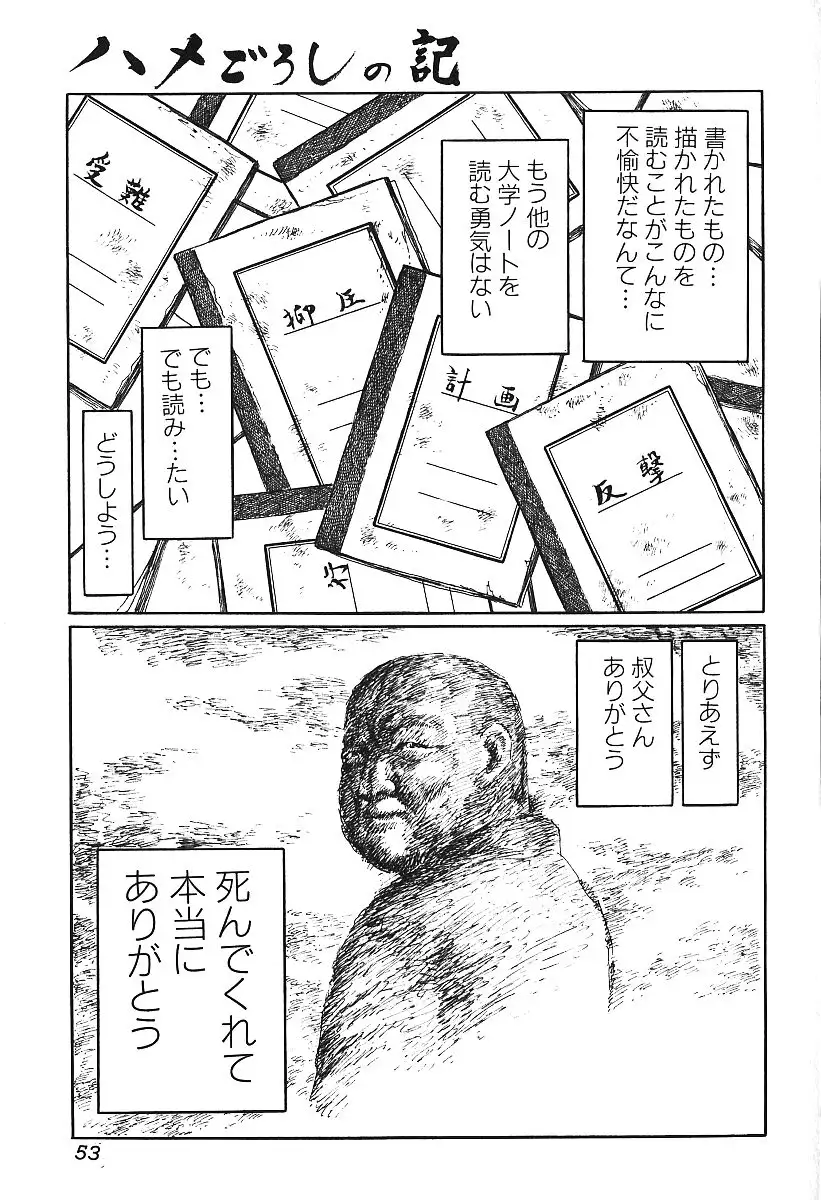 ハメごろしの記
書かれたもの…
描かれたものを
読むことがこんなに
不愉快だなんて…
もう他の
大学ノートを
読む勇気はない
でも…
でも読み…たい
どうしよう…
受難
計画
反撃
行
とりあえず
叔父さん
ありがとう
死んでくれて
本当に
ありがとう
53